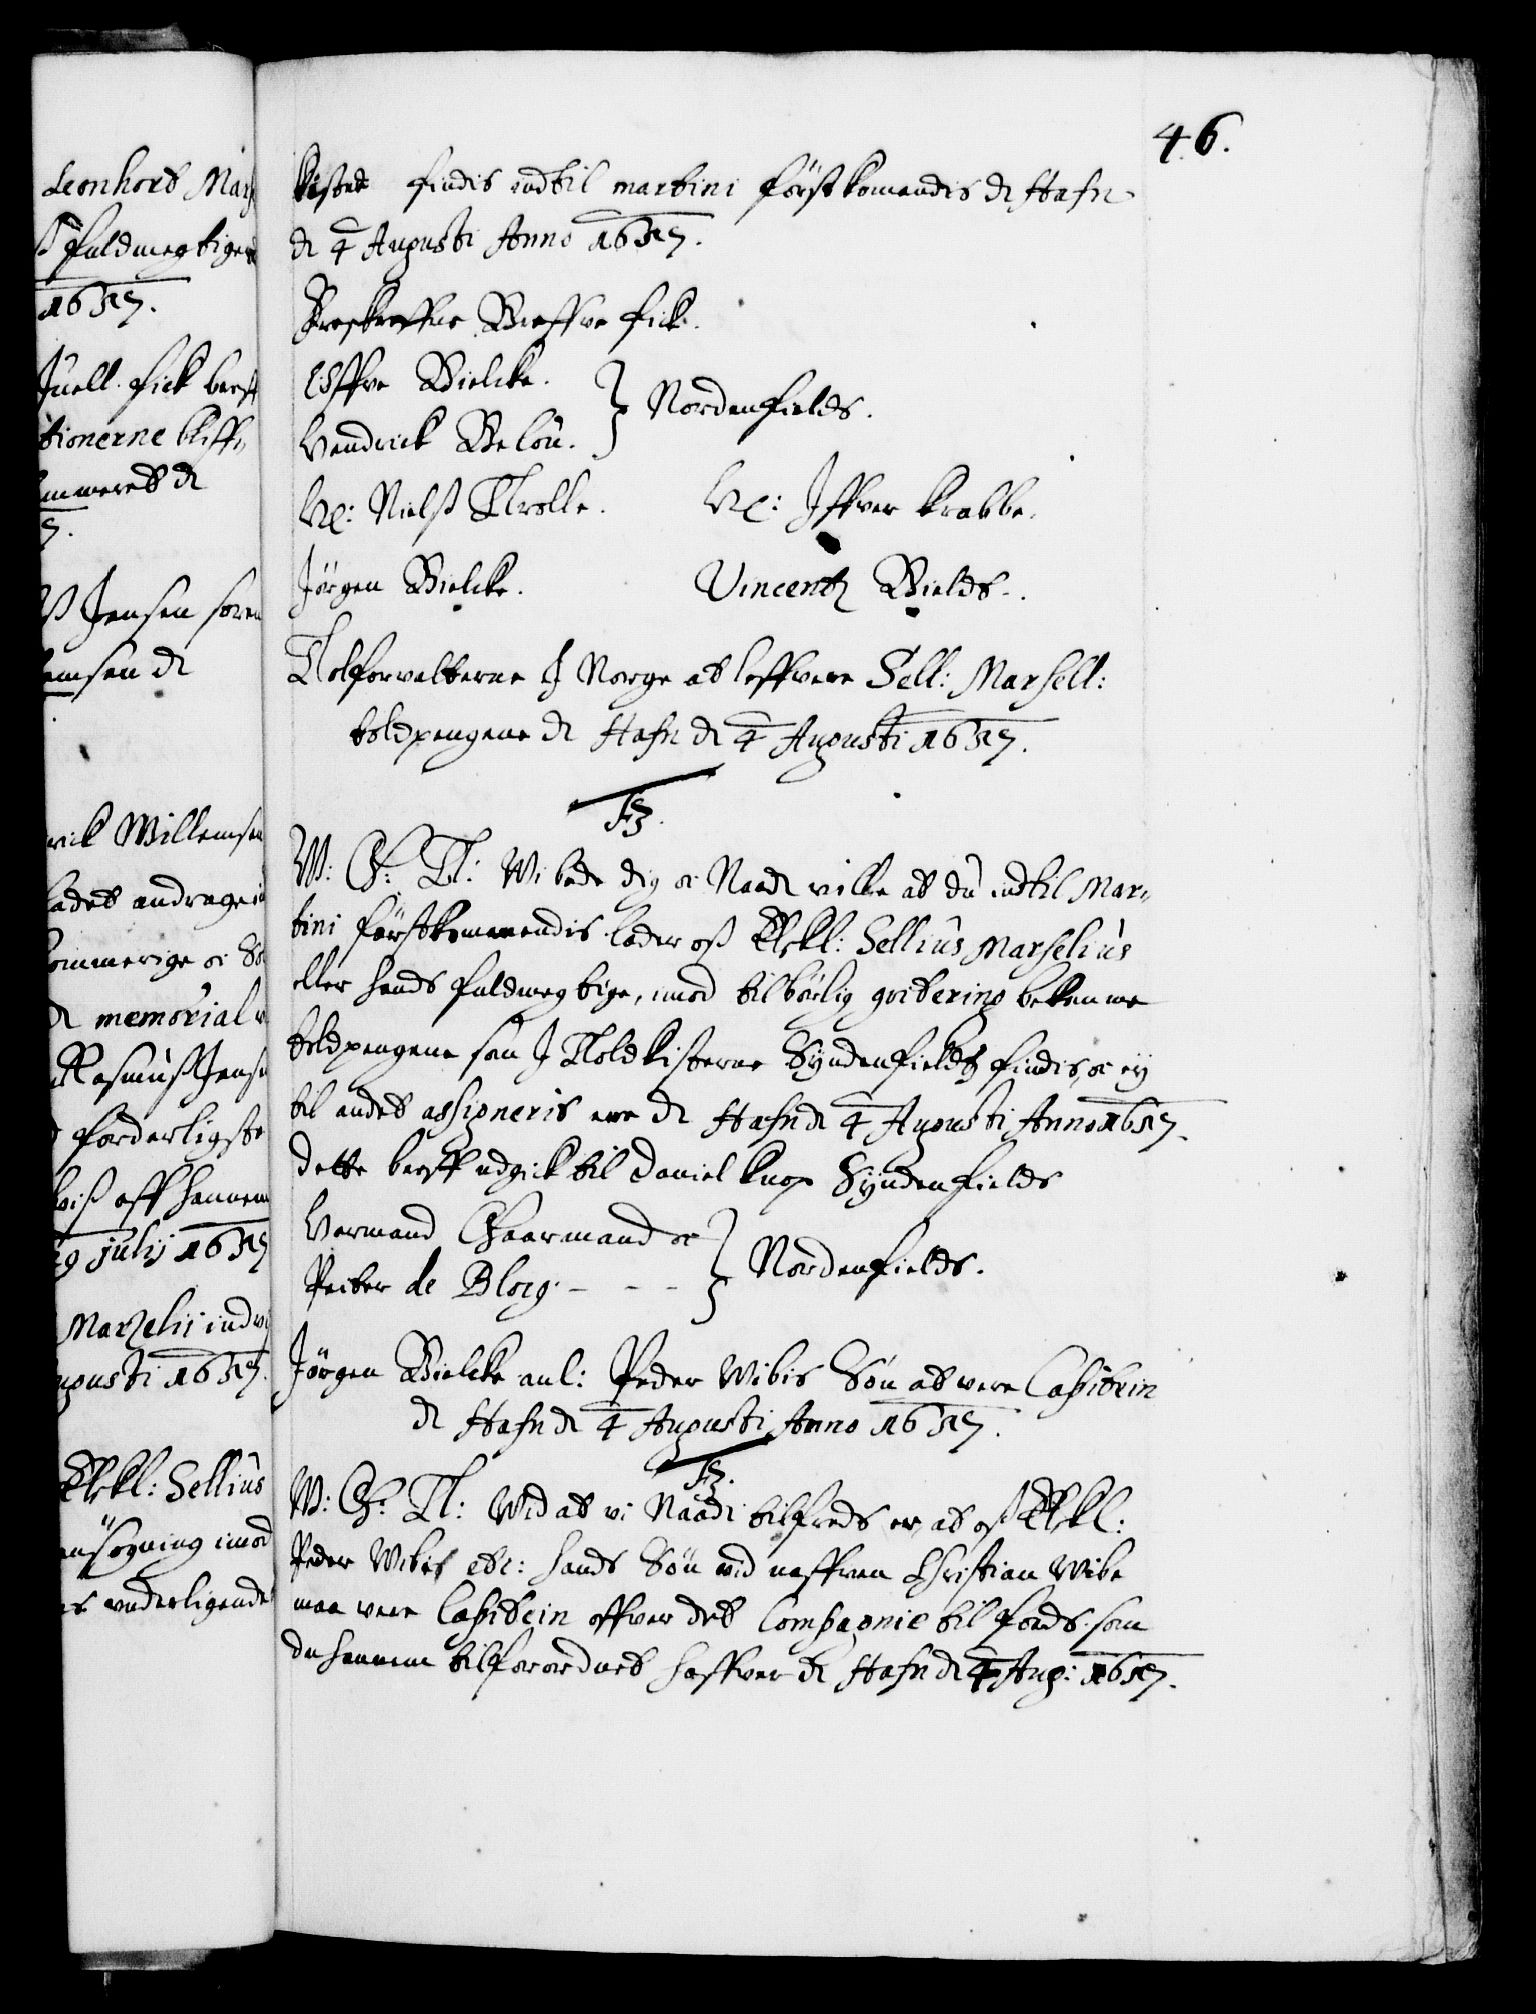 46.
Leonhord Mars
ß fuldmegtige
1657.
Juell. fick berf
tionerne bliff
ammeret dn
7.
lß Jensen soren
lemsen dn
rick Willemsen
ladet andrage
kommerige oc
memorial
Rasmuß Jens
forderligste
huiß aff hannem
29 julij 1657
Marzelij ind
ugusti 1657.
Elskl: Sellius
ansögning imod
es underligende
kisten findis indtil martini först komendis dn Hafn
dn 4 Augusti Anno 1657.
Breffue fick.
Offve Bielcke. } Nordenfields.
Hendrick Belou.
Hr: Nielß Trolle. Hr: Iffver Krabbe.
Jörgen Bielcke. Vincentz Bields.
Tolforvalterne I Norge at leffvere Sell: Marsell:
toldpengene dn Hafn dn 4 Augusti 1657.
F3.
W: G: T: Wi bede dig oc Naad: ville at du indtil Mar-
tini förstkommendis lader oß Elskl: Sellius Marselius
eller hands fuldmegtige, imod tilbörlig qvitering bekomme
toldpengene som I Toldkisterne Syndenfieldß findis, oc ey
til andet assigneris ere dn Hafn dn 4 Augusti Anno 1657.
dette breff udgick til Daniel Knop Syndenfields
Herman Gaarmand oc } Nordenfields.
Peiter de Blocq - - -
Jörgen Bielcke anl: Peder Wibis Sön at were Capitein
dn Hafn dn 4 Augusti Anno 1657.
F3.
W: G: T: Wid at vi Naadi: tilfreds er, at oß Elskl:
Peder Wibis etc: hands Sön vid naffven Christian Wibe
maa vere Capitein offver det Compagnie til fods som
du hannem tilforordnet haffver dn Hafn dn 4 Aug: 1657.